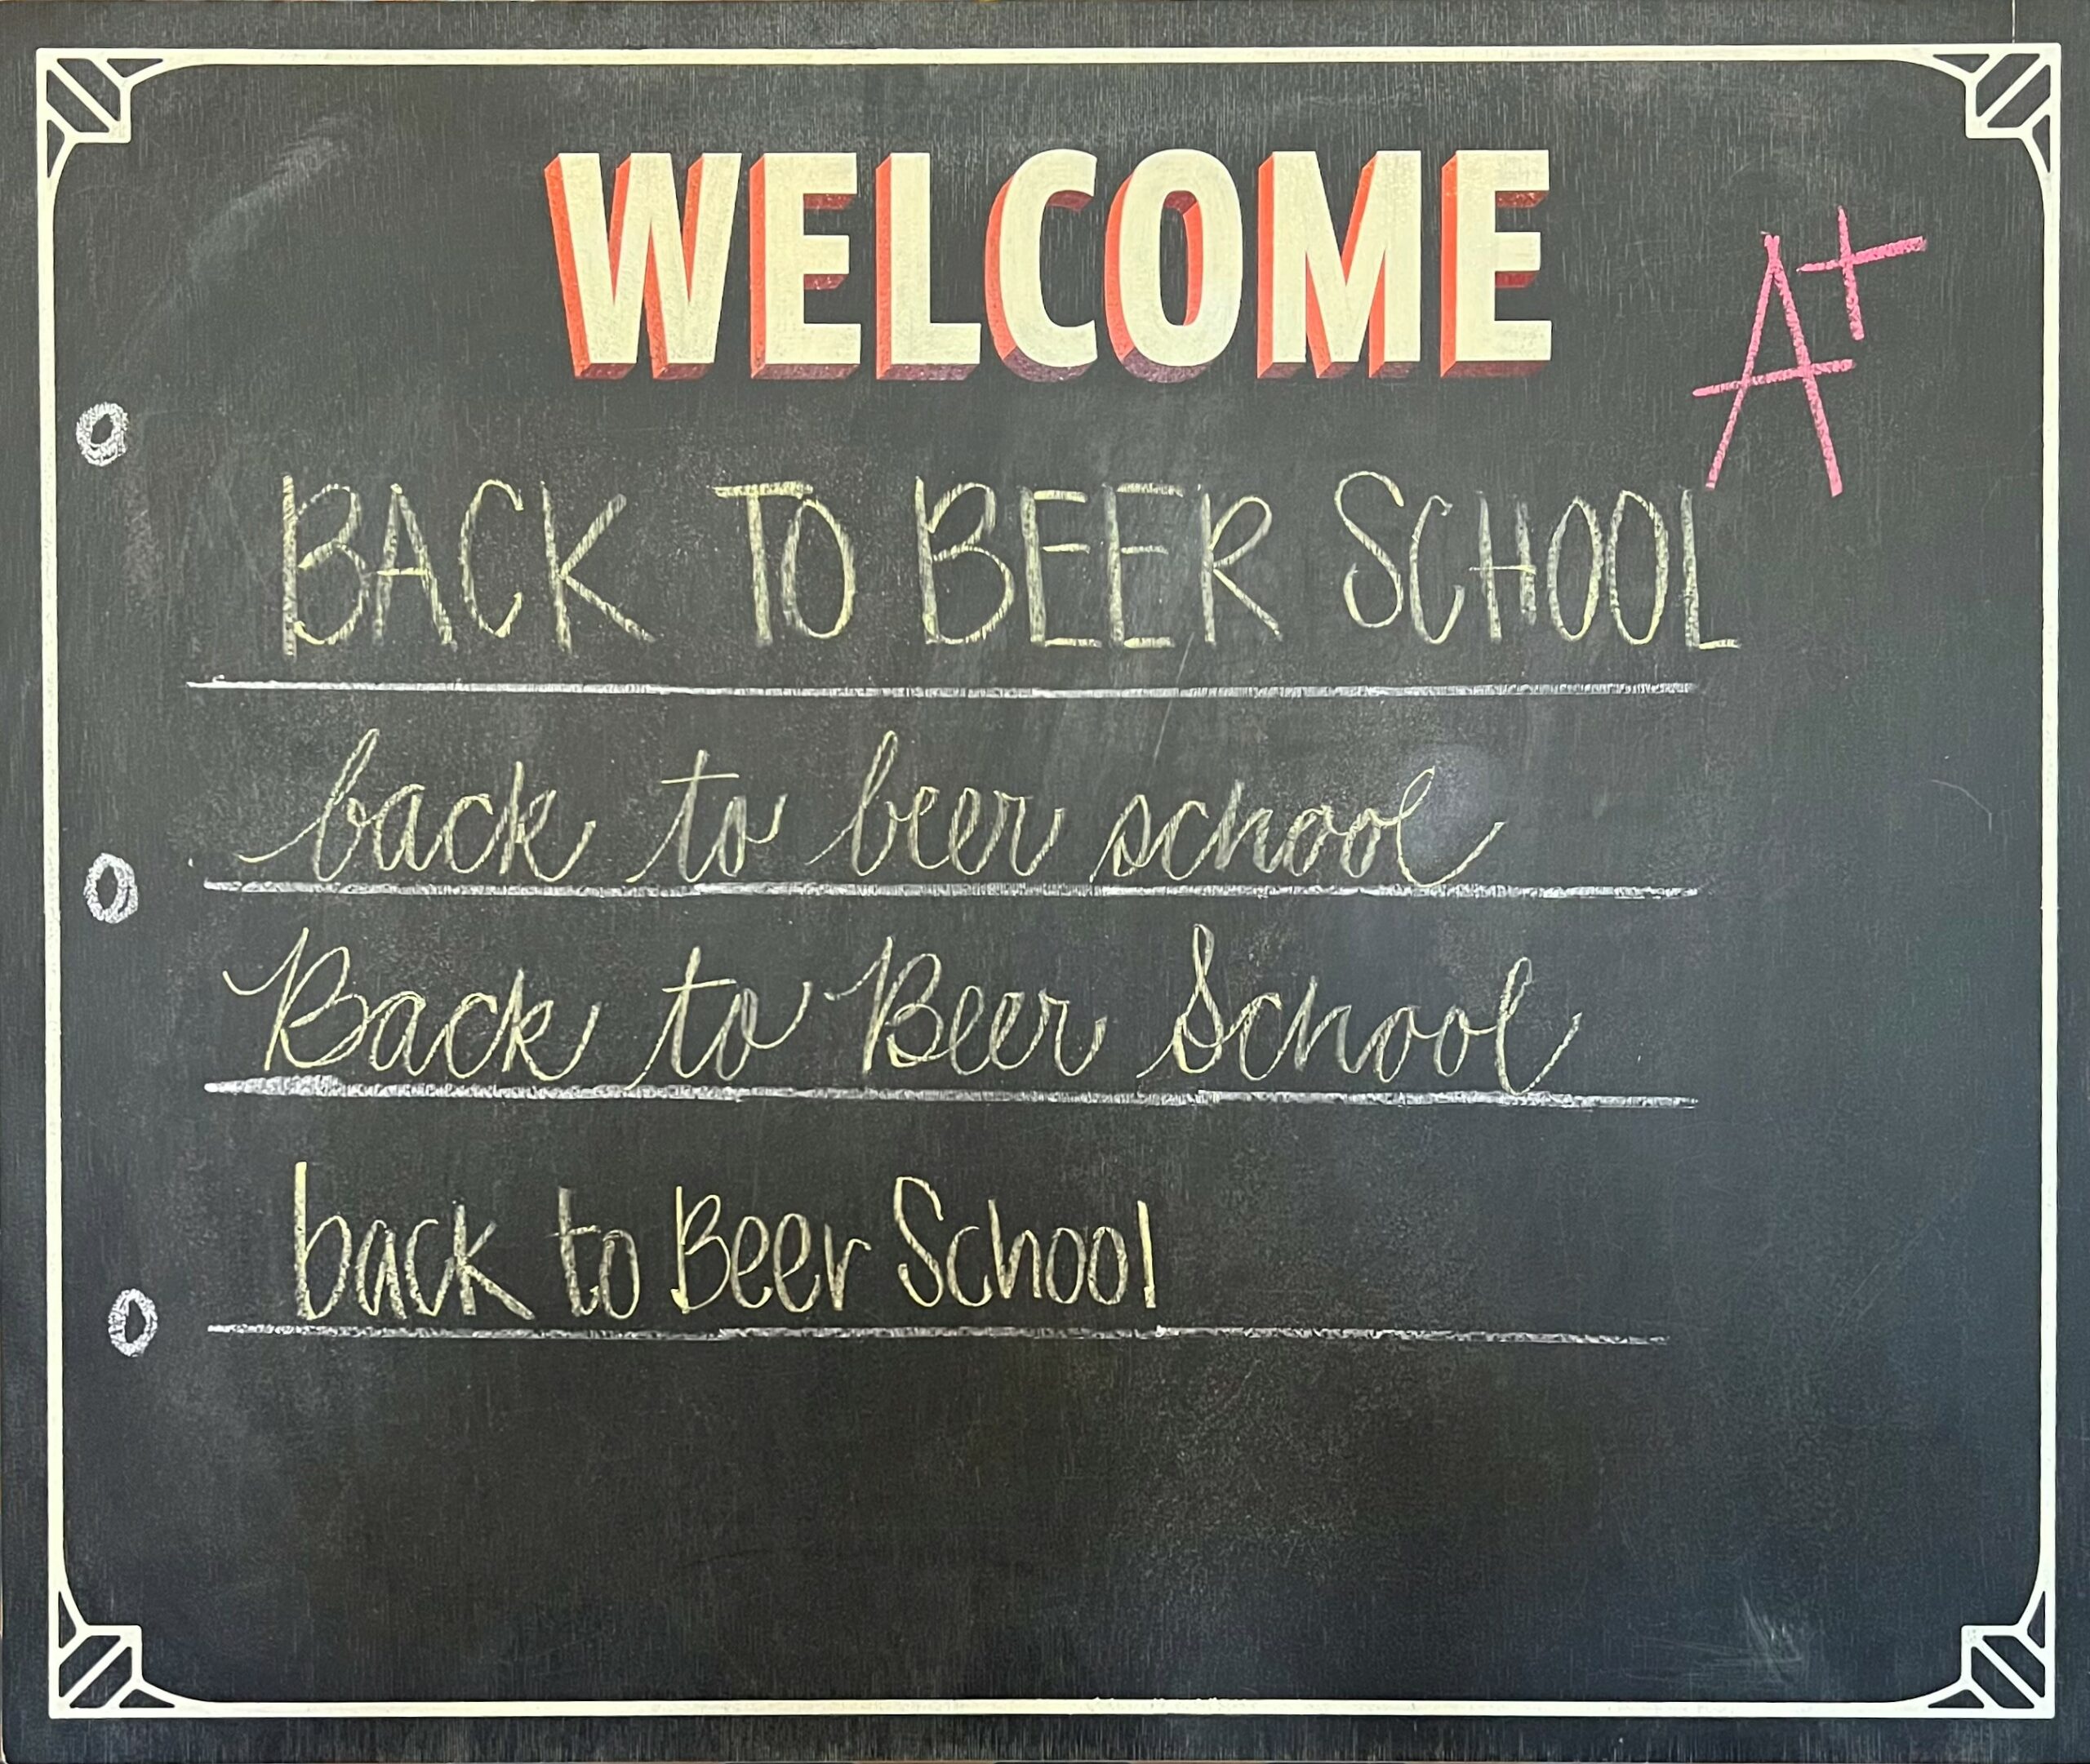 WELCOME
A+
BACK TO BEER SCHOOL
back to beer school
Back to Beer School
back to Beer School